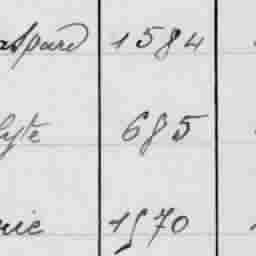 aspard 1584
lyte 685
rie 1570